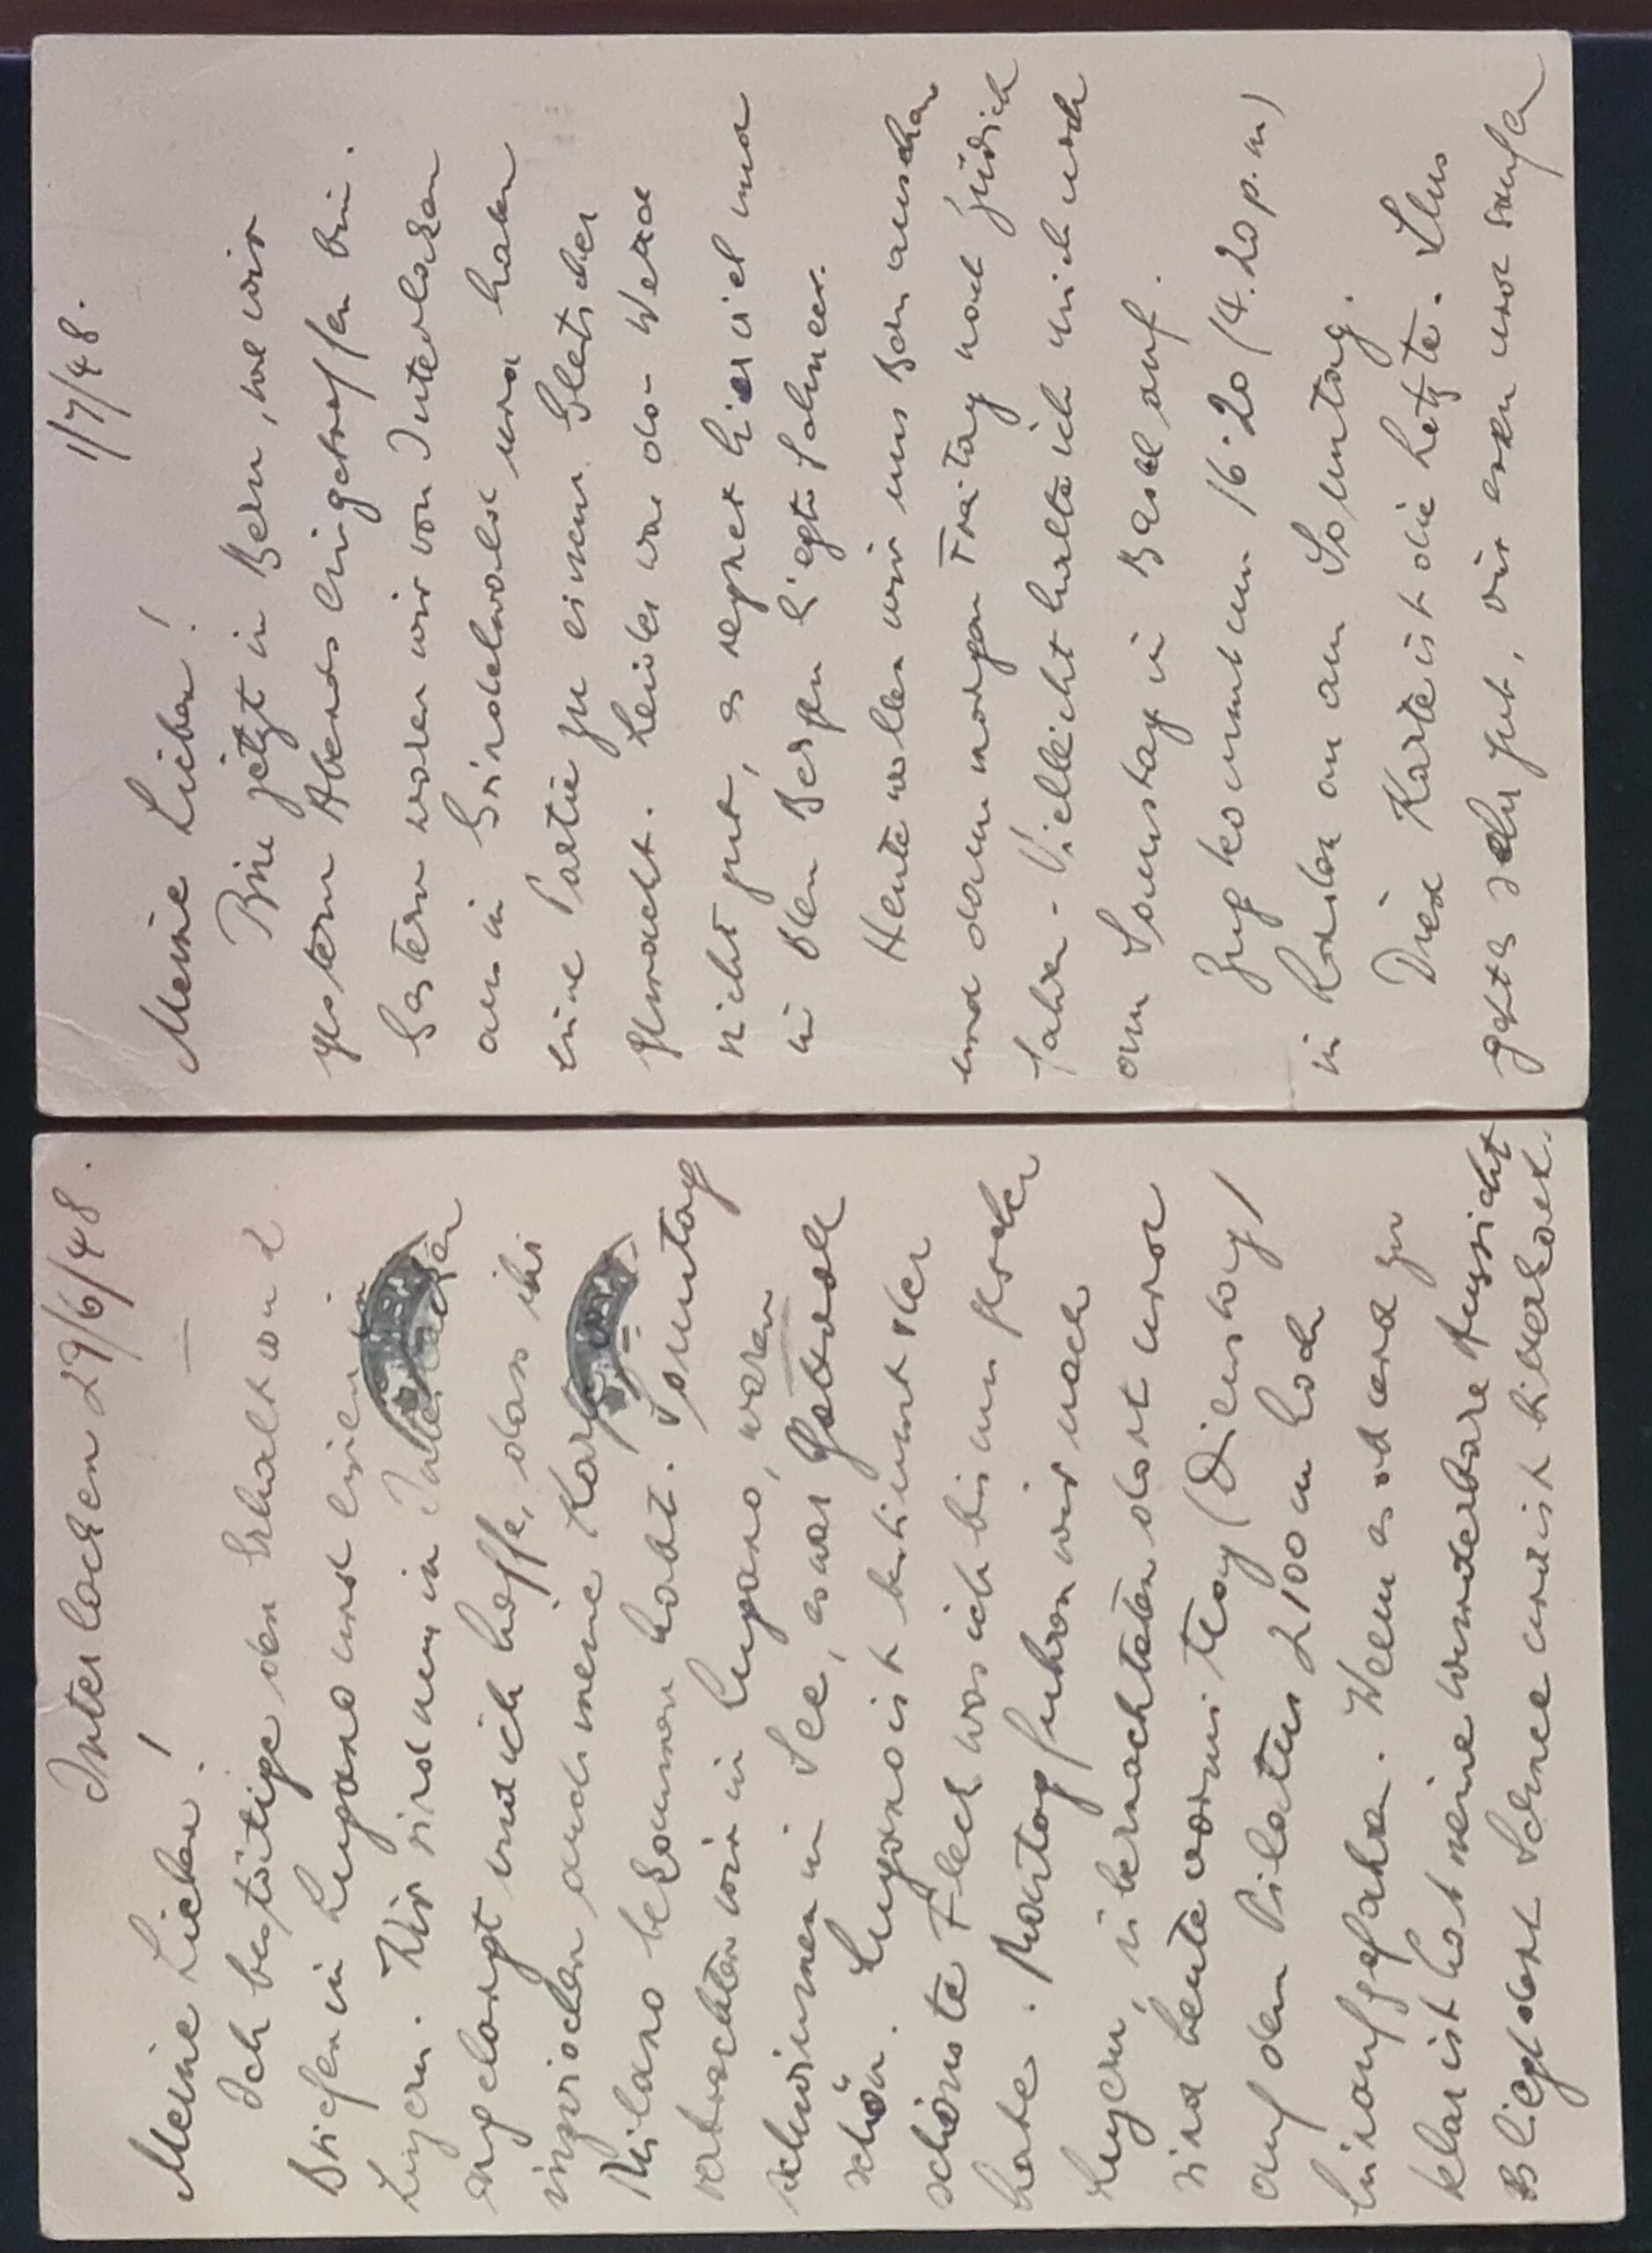 Interlacken 29/6/48.
Meine Lieben!
Ich bestätige den Erhalt von 2
Briefen in Lugano und
Luzern. Wir sind nun in Interlacken
angelangt und ich hoffe, dass ihr
inzwischen auch meine
Milano bekommen habt. Sonntag
wir in Lugano, waren
schwimmen im See, es war
schön. Lugano ist bestimmt der
schönste Fleck was ich bis nun gesehen
habe. Montag fuhren wir nach
Luzern, übernachteten dort und
sind heute vormittag (Dienstag)
auf den Pilatus 2100 m hoch
hinaufgefahren. Wenn es
klar ist hat man eine wunderbare Aussicht
Es liegt dort Schnee und ist
1/7/48.
Meine Lieben!
Bin jetzt in Bern, wo wir
gestern Abends eingetroffen bin.
Gestern waren wir von Interlacken
aus in Grindelwald und haben
eine Partie zu einem Gletscher
gemacht. Leider war das Wetter
nicht gut, es regnet hier viel und
in den Bergen liegt Schnee.
Heute wollen wir uns Bern anschauen
und dann morgen Freitag nach Zürich
fahren. Vielleicht halte ich mich noch
am Samstag in Basel auf.
Zug kommt um 16.20 (4.20 p.m)
in London an am Sonntag.
Diese Karte ist die letzte. Uns
geht es sehr gut, wir essen und